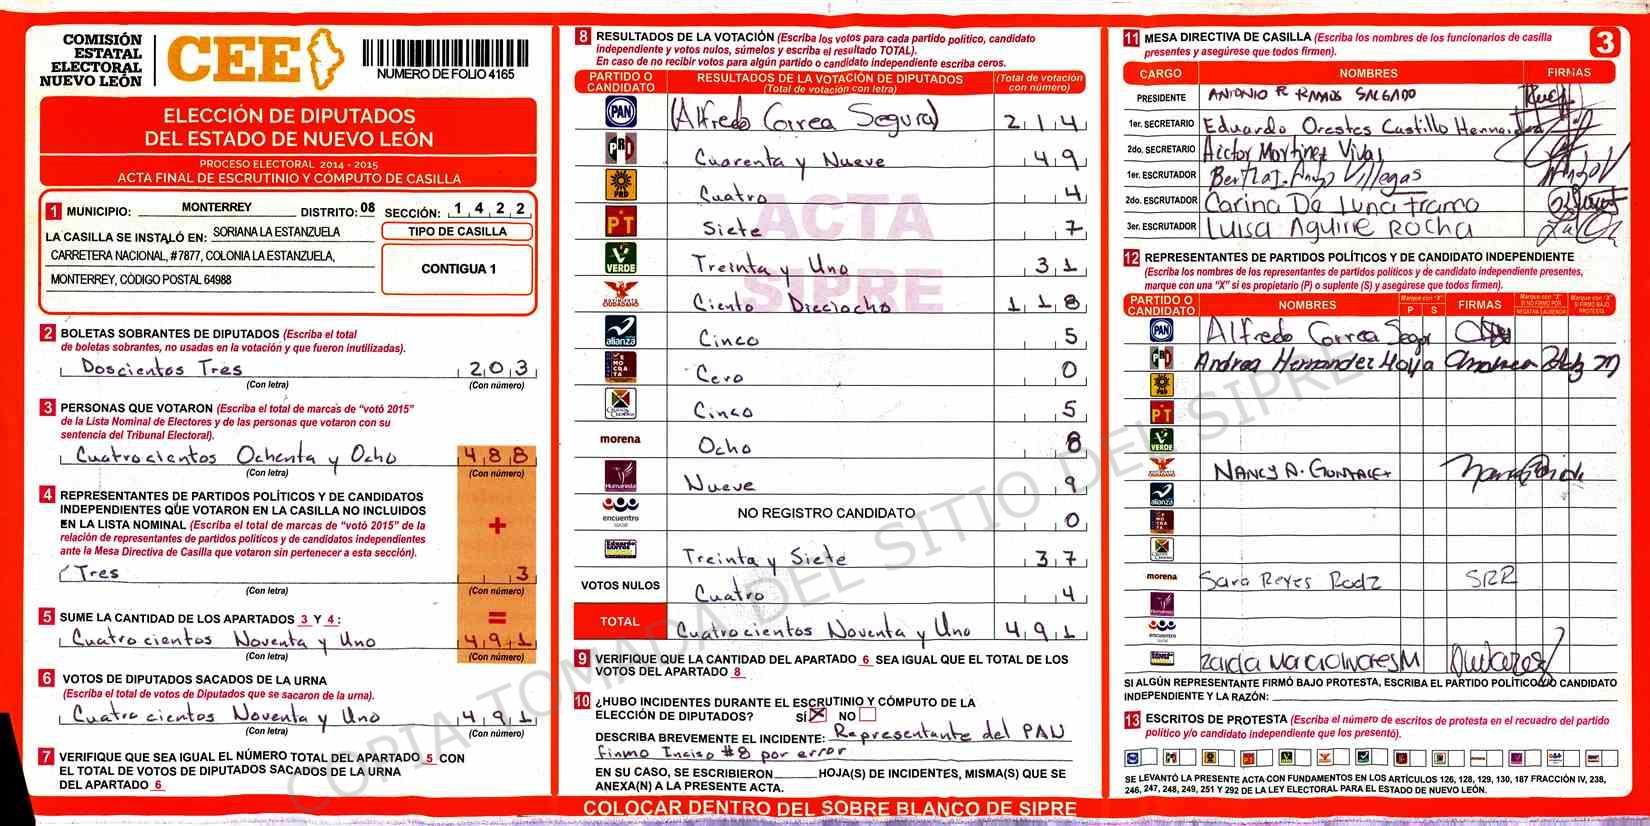 COMISIÓN
ESTATAL
ELECTORAL
NUEVO LEÓN
CEE
NUMERO DE FOLIO 4165
ELECCIÓN DE DIPUTADOS
DEL ESTADO DE NUEVO LEÓN
PROCESO ELECTORAL 2014 - 2015
ACTA FINAL DE ESCRUTINIO Y CÓMPUTO DE CASILLA
1 MUNICIPIO: MONTERREY DISTRITO: 08 SECCIÓN: 1 4 2 2
LA CASILLA SE INSTALÓ EN: SORIANA LA ESTANZUELA
CARRETERA NACIONAL, #7877, COLONIA LA ESTANZUELA,
MONTERREY, CÓDIGO POSTAL 64988
TIPO DE CASILLA
CONTIGUA 1
2 BOLETAS SOBRANTES DE DIPUTADOS (Escriba el total
de boletas sobrantes, no usadas en la votación y que fueron inutilizadas).
Doscientos Tres 2 0 3
(Con letra) (Con número)
3 PERSONAS QUE VOTARON (Escriba el total de marcas de “votó 2015”
de la Lista Nominal de Electores y de las personas que votaron con su
sentencia del Tribunal Electoral).
Cuatrocientos Ochenta y Ocho 4 8 8
(Con letra) (Con número)
4 REPRESENTANTES DE PARTIDOS POLÍTICOS Y DE CANDIDATOS
INDEPENDIENTES QUE VOTARON EN LA CASILLA NO INCLUIDOS
EN LA LISTA NOMINAL (Escriba el total de marcas de “votó 2015” de la
relación de representantes de partidos políticos y de candidatos independientes
ante la Mesa Directiva de Casilla que votaron sin pertenecer a esta sección).
+
Tres 3
(Con letra) (Con número)
5 SUME LA CANTIDAD DE LOS APARTADOS 3 Y 4: =
Cuatrocientos Noventa y Uno 4 9 1
(Con letra) (Con número)
6 VOTOS DE DIPUTADOS SACADOS DE LA URNA
(Escriba el total de votos de Diputados que se sacaron de la urna).
Cuatrocientos Noventa y Uno 4 9 1
(Con letra) (Con número)
7 VERIFIQUE QUE SEA IGUAL EL NÚMERO TOTAL DEL APARTADO 5 CON
EL TOTAL DE VOTOS DE DIPUTADOS SACADOS DE LA URNA
DEL APARTADO 6
8 RESULTADOS DE LA VOTACIÓN (Escriba los votos para cada partido político, candidato
independiente y votos nulos, súmelos y escriba el resultado TOTAL).
En caso de no recibir votos para algún partido o candidato independiente escriba ceros.
PARTIDO O CANDIDATO RESULTADOS DE LA VOTACIÓN DE DIPUTADOS (Total de votación con letra) (Total de votación con número)
PAN (Alfredo Correa Segura) 2 1 4
PRI Cuarenta y Nueve 4 9
PRD Cuatro 4
PT Siete 7
VERDE Treinta y Uno 3 1
CIUDADANO Ciento Dieciocho 1 1 8
alianza Cinco 5
Cero 0
Cinco 5
morena Ocho 8
Humanista Nueve 9
encuentro NO REGISTRO CANDIDATO 0
Treinta y Siete 3 7
VOTOS NULOS Cuatro 4
TOTAL Cuatrocientos Noventa y Uno 4 9 1
ACTA
SIPRE
COPIA TOMADA DEL SITIO DEL SIPRE
9 VERIFIQUE QUE LA CANTIDAD DEL APARTADO 6 SEA IGUAL QUE EL TOTAL DE LOS
VOTOS DEL APARTADO 8
10 ¿HUBO INCIDENTES DURANTE EL ESCRUTINIO Y CÓMPUTO DE LA
ELECCIÓN DE DIPUTADOS? SÍ X NO
DESCRIBA BREVEMENTE EL INCIDENTE: Representante del PAN
firmo Inciso #8 por error
EN SU CASO, SE ESCRIBIERON HOJA(S) DE INCIDENTES, MISMA(S) QUE SE
ANEXA(N) A LA PRESENTE ACTA.
COLOCAR DENTRO DEL SOBRE BLANCO DE SIPRE
11 MESA DIRECTIVA DE CASILLA (Escriba los nombres de los funcionarios de casilla
presentes y asegúrese que todos firmen).
3
CARGO NOMBRES FIRMAS
PRESIDENTE ANTONIO R RAMOS SALGADO
1er. SECRETARIO Eduardo Orestes Castillo
2do. SECRETARIO Martinez
1er. ESCRUTADOR Villegas
2do. ESCRUTADOR Carina De Luna
3er. ESCRUTADOR Luisa Aguirre Rocha
12 REPRESENTANTES DE PARTIDOS POLÍTICOS Y DE CANDIDATO INDEPENDIENTE
(Escriba los nombres de los representantes de partidos políticos y de candidato independiente presentes,
marque con una “X” si es propietario (P) o suplente (S) y asegúrese que todos firmen).
PARTIDO O CANDIDATO NOMBRES Marque con “X” P S FIRMAS Marque con “X” SI NO FIRMÓ POR NEGATIVA AUSENCIA Marque con “X” SI FIRMÓ BAJO PROTESTA
PAN Alfredo Correa
PRI Andrea Hernandez Moya
PRD
PT
VERDE
CIUDADANO NANCY A. GONZALEZ
alianza
morena Sara Reyes Rodz SRR
Humanista
encuentro
SI ALGÚN REPRESENTANTE FIRMÓ BAJO PROTESTA, ESCRIBA EL PARTIDO POLÍTICO Y/O CANDIDATO
INDEPENDIENTE Y LA RAZÓN:
13 ESCRITOS DE PROTESTA (Escriba el número de escritos de protesta en el recuadro del partido
político y/o candidato independiente que los presentó).
SE LEVANTÓ LA PRESENTE ACTA CON FUNDAMENTOS EN LOS ARTÍCULOS 126, 128, 129, 130, 187 FRACCIÓN IV, 238,
246, 247, 248, 249, 251 Y 292 DE LA LEY ELECTORAL PARA EL ESTADO DE NUEVO LEÓN.